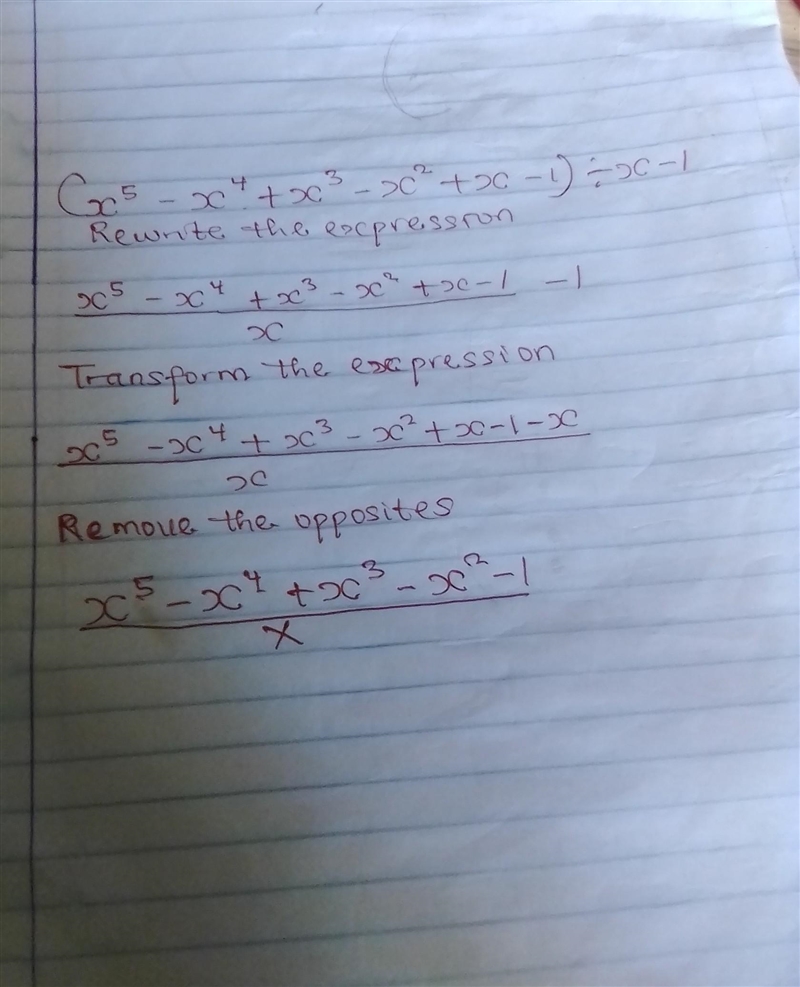 (x⁵ - x⁴ + x³ - x² + x - 1) ÷ x - 1
Rewrite the expression
x⁵ - x⁴ + x³ - x² + x - 1 - 1
x
Transform the expression
x⁵ - x⁴ + x³ - x² + x - 1 - x
x
Remove the opposites
x⁵ - x⁴ + x³ - x² - 1
x